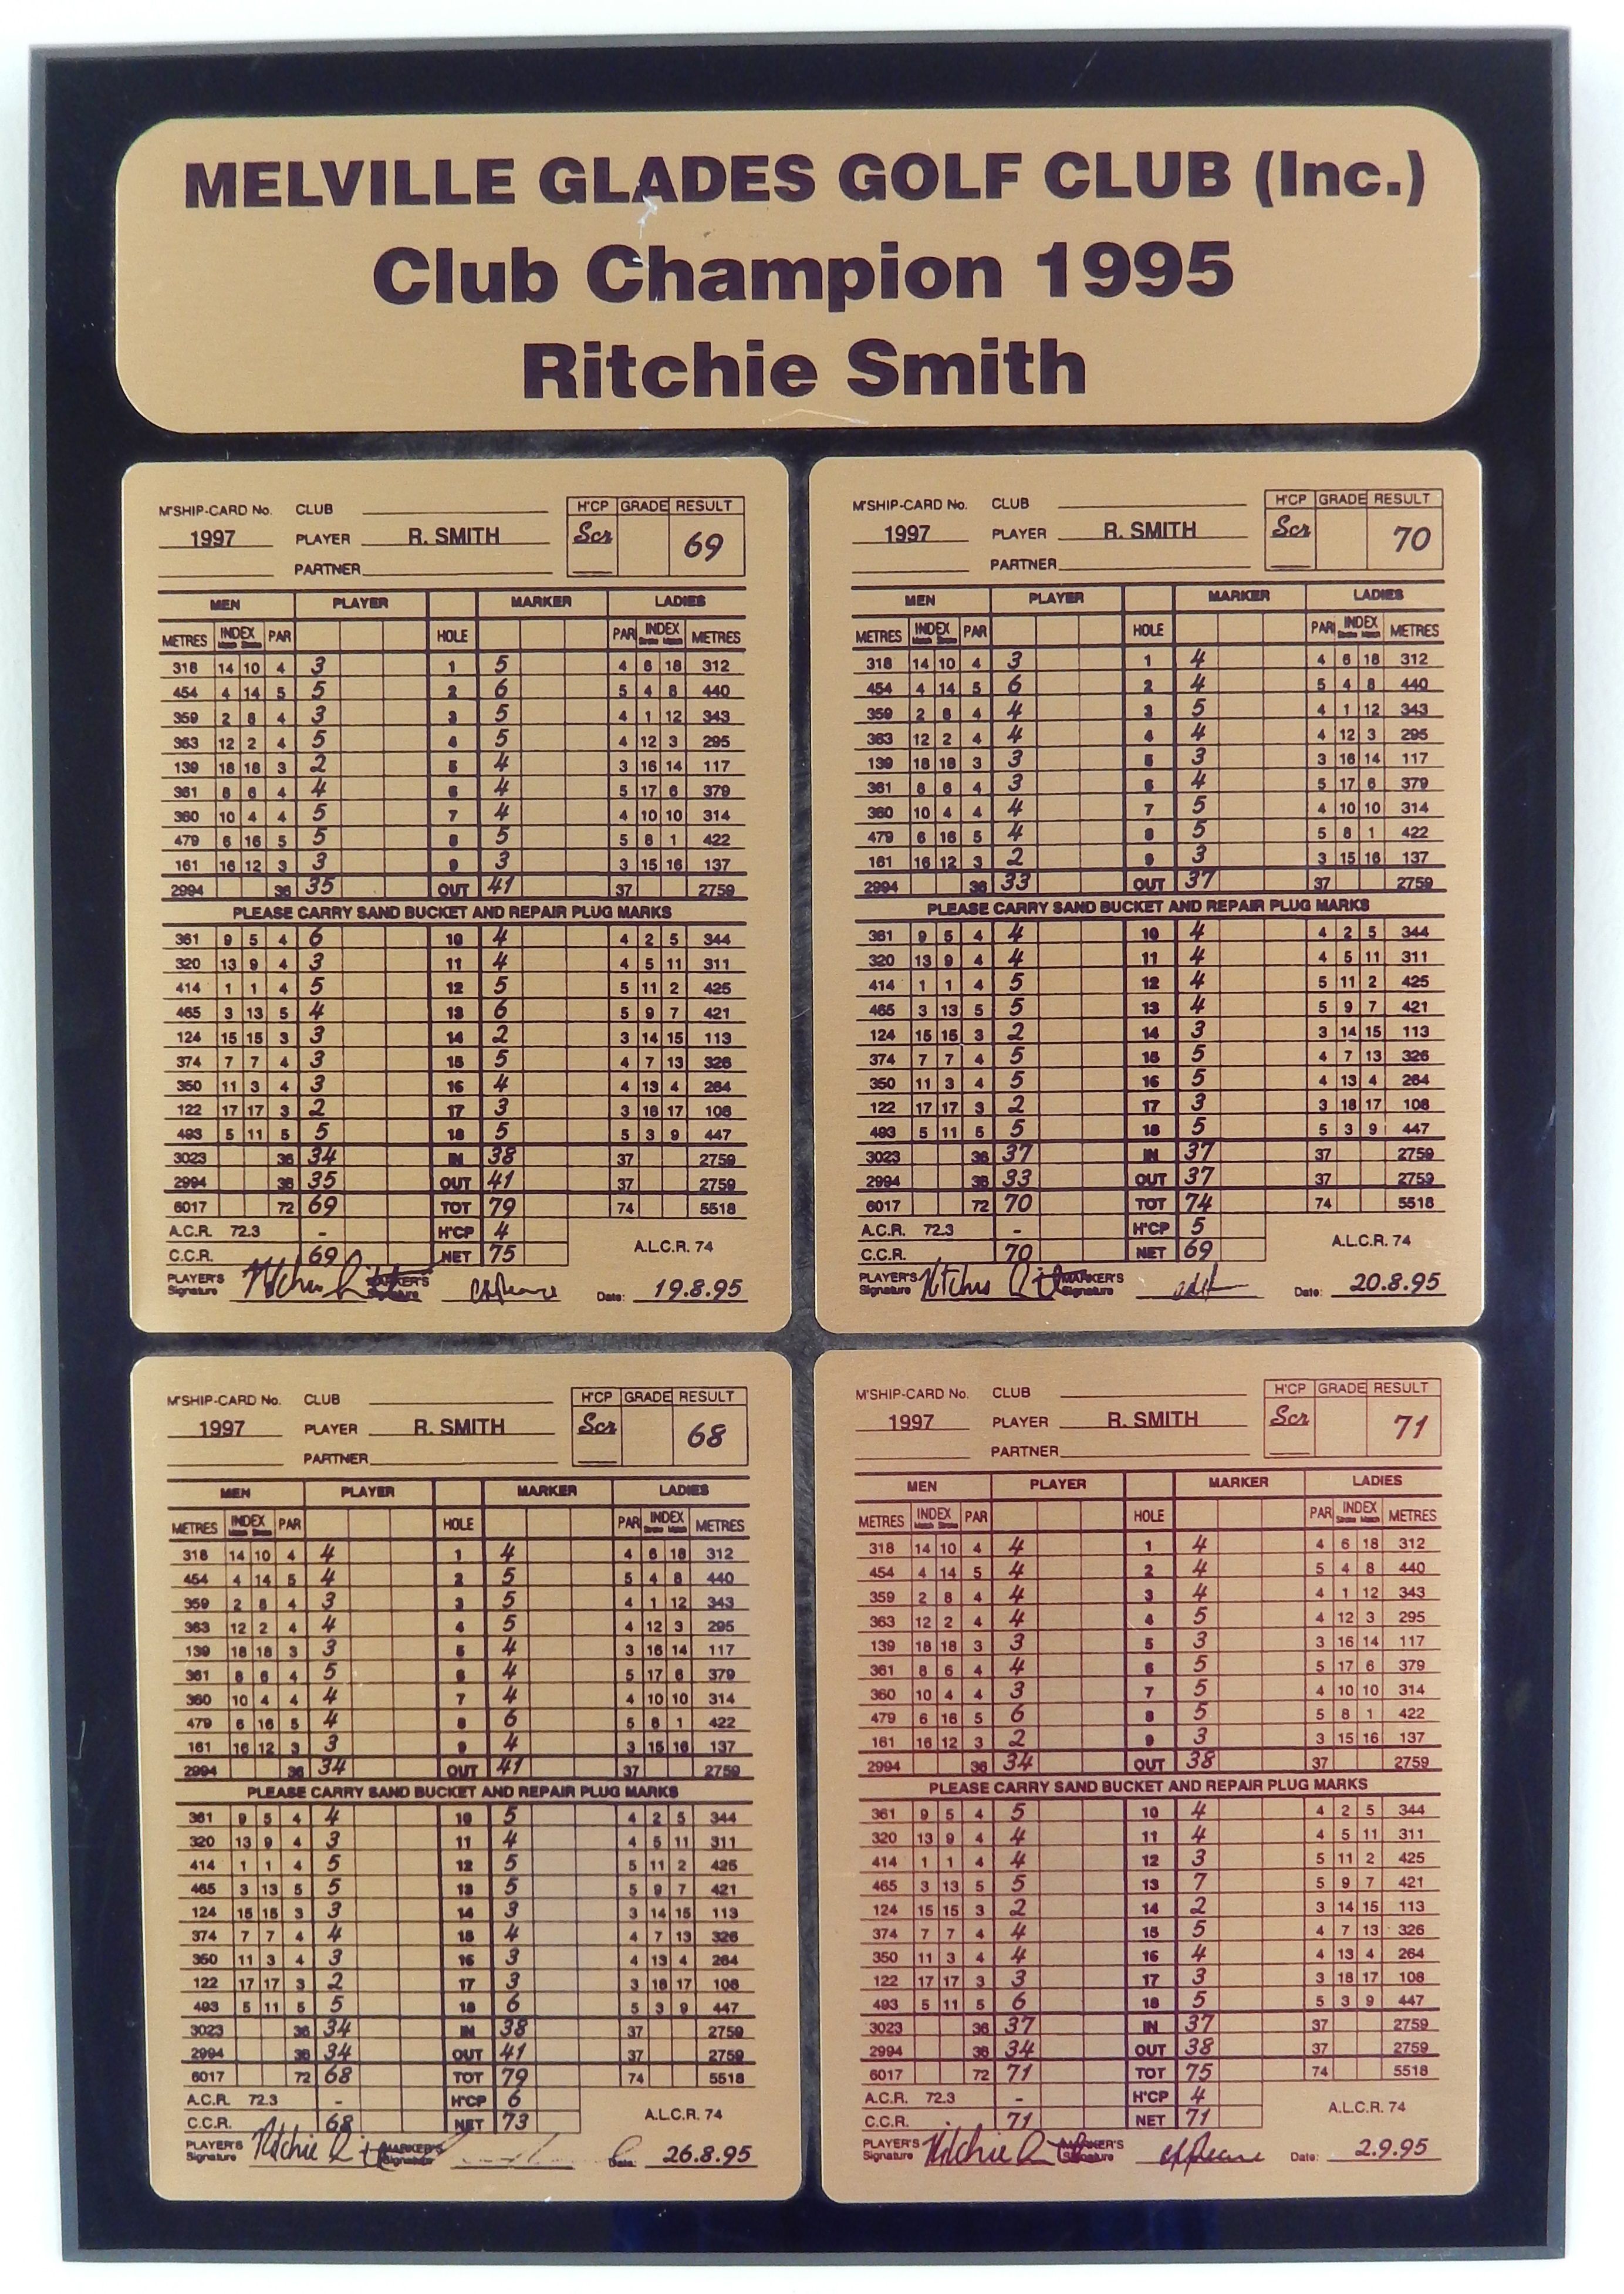 MELVILLE GLADES GOLF CLUB (Inc.)
Club Champion 1995
Ritchie Smith
M'SHIP-CARD No. CLUB H'CP GRADE RESULT
1997 PLAYER R. SMITH Scr 69
PARTNER
MEN PLAYER MARKER LADIES
METRES INDEX PAR HOLE PAR INDEX METRES
Match Stroke Stroke Match
318 14 10 4 3 1 5 4 6 18 312
454 4 14 5 5 2 6 5 4 8 440
359 2 8 4 3 3 5 4 1 12 343
363 12 2 4 5 4 5 4 12 3 295
139 18 18 3 2 5 4 3 16 14 117
361 8 6 4 4 6 4 5 17 6 379
360 10 4 4 5 7 4 4 10 10 314
479 6 16 5 5 8 5 5 8 1 422
161 16 12 3 3 9 3 3 15 16 137
2994 36 35 OUT 41 37 2759
PLEASE CARRY SAND BUCKET AND REPAIR PLUG MARKS
361 9 5 4 6 10 4 4 2 5 344
320 13 9 4 3 11 4 4 5 11 311
414 1 1 4 5 12 5 5 11 2 425
465 3 13 5 4 13 6 5 9 7 421
124 15 15 3 3 14 2 3 14 15 113
374 7 7 4 3 15 5 4 7 13 326
350 11 3 4 3 16 4 4 13 4 264
122 17 17 3 2 17 3 3 18 17 108
493 5 11 5 5 18 5 5 3 9 447
3023 36 34 IN 38 37 2759
2994 36 35 OUT 41 37 2759
6017 72 69 TOT 79 74 5518
A.C.R. 72.3 - H'CP 4
C.C.R. 69 NET 75 A.L.C.R. 74
PLAYER'S Signature Ritchie MARKER'S Signature Date: 19.8.95
M'SHIP-CARD No. CLUB H'CP GRADE RESULT
1997 PLAYER R. SMITH Scr 70
PARTNER
MEN PLAYER MARKER LADIES
METRES INDEX PAR HOLE PAR INDEX METRES
Match Stroke Stroke Match
318 14 10 4 3 1 4 4 6 18 312
454 4 14 5 6 2 4 5 4 8 440
359 2 8 4 4 3 5 4 1 12 343
363 12 2 4 4 4 4 4 12 3 295
139 18 18 3 3 5 3 3 16 14 117
361 8 6 4 3 6 4 5 17 6 379
360 10 4 4 4 7 5 4 10 10 314
479 6 16 5 4 8 5 5 8 1 422
161 16 12 3 2 9 3 3 15 16 137
2994 36 33 OUT 37 37 2759
PLEASE CARRY SAND BUCKET AND REPAIR PLUG MARKS
361 9 5 4 4 10 4 4 2 5 344
320 13 9 4 4 11 4 4 5 11 311
414 1 1 4 5 12 4 5 11 2 425
465 3 13 5 5 13 4 5 9 7 421
124 15 15 3 2 14 3 3 14 15 113
374 7 7 4 5 15 5 4 7 13 326
350 11 3 4 5 16 5 4 13 4 264
122 17 17 3 2 17 3 3 18 17 108
493 5 11 5 5 18 5 5 3 9 447
3023 36 37 IN 37 37 2759
2994 36 33 OUT 37 37 2759
6017 72 70 TOT 74 74 5518
A.C.R. 72.3 - H'CP 5
C.C.R. 70 NET 69 A.L.C.R. 74
PLAYER'S Signature Ritchie MARKER'S Signature Date: 20.8.95
M'SHIP-CARD No. CLUB H'CP GRADE RESULT
1997 PLAYER R. SMITH Scr 68
PARTNER
MEN PLAYER MARKER LADIES
METRES INDEX PAR HOLE PAR INDEX METRES
Match Stroke Stroke Match
318 14 10 4 4 1 4 4 6 18 312
454 4 14 5 4 2 5 5 4 8 440
359 2 8 4 3 3 5 4 1 12 343
363 12 2 4 4 4 5 4 12 3 295
139 18 18 3 3 5 4 3 16 14 117
361 8 6 4 5 6 4 5 17 6 379
360 10 4 4 4 7 4 4 10 10 314
479 6 16 5 4 8 6 5 8 1 422
161 16 12 3 3 9 4 3 15 16 137
2994 36 34 OUT 41 37 2759
PLEASE CARRY SAND BUCKET AND REPAIR PLUG MARKS
361 9 5 4 4 10 5 4 2 5 344
320 13 9 4 3 11 4 4 5 11 311
414 1 1 4 5 12 5 5 11 2 425
465 3 13 5 5 13 5 5 9 7 421
124 15 15 3 3 14 3 3 14 15 113
374 7 7 4 4 15 4 4 7 13 326
350 11 3 4 3 16 3 4 13 4 264
122 17 17 3 2 17 3 3 18 17 108
493 5 11 5 5 18 6 5 3 9 447
3023 36 34 IN 38 37 2759
2994 36 34 OUT 41 37 2759
6017 72 68 TOT 79 74 5518
A.C.R. 72.3 - H'CP 6
C.C.R. 68 NET 73 A.L.C.R. 74
PLAYER'S Signature Ritchie MARKER'S Signature Date: 26.8.95
M'SHIP-CARD No. CLUB H'CP GRADE RESULT
1997 PLAYER R. SMITH Scr 71
PARTNER
MEN PLAYER MARKER LADIES
METRES INDEX PAR HOLE PAR INDEX METRES
Match Stroke Stroke Match
318 14 10 4 4 1 4 4 6 18 312
454 4 14 5 4 2 4 5 4 8 440
359 2 8 4 4 3 4 4 1 12 343
363 12 2 4 4 4 5 4 12 3 295
139 18 18 3 3 5 3 3 16 14 117
361 8 6 4 4 6 5 5 17 6 379
360 10 4 4 3 7 5 4 10 10 314
479 6 16 5 6 8 5 5 8 1 422
161 16 12 3 2 9 3 3 15 16 137
2994 36 34 OUT 38 37 2759
PLEASE CARRY SAND BUCKET AND REPAIR PLUG MARKS
361 9 5 4 5 10 4 4 2 5 344
320 13 9 4 4 11 4 4 5 11 311
414 1 1 4 4 12 3 5 11 2 425
465 3 13 5 5 13 7 5 9 7 421
124 15 15 3 2 14 2 3 14 15 113
374 7 7 4 4 15 5 4 7 13 326
350 11 3 4 4 16 4 4 13 4 264
122 17 17 3 3 17 3 3 18 17 108
493 5 11 5 6 18 5 5 3 9 447
3023 36 37 IN 37 37 2759
2994 36 34 OUT 38 37 2759
6017 72 71 TOT 75 74 5518
A.C.R. 72.3 - H'CP 4
C.C.R. 71 NET 71 A.L.C.R. 74
PLAYER'S Signature Ritchie MARKER'S Signature Date: 2.9.95